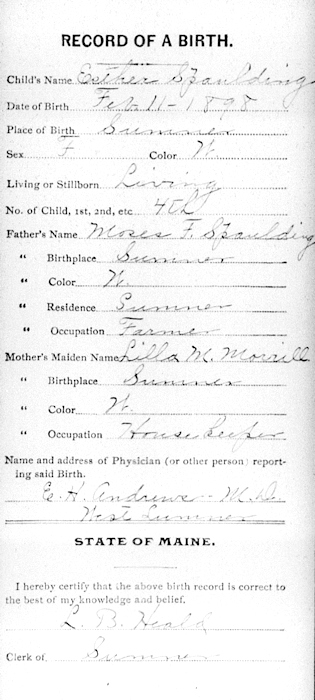 RECORD OF A BIRTH.
Child's Name Esther Spaulding
Date of Birth Feb 11 - 1898
Place of Birth Sumner
Sex F Color W.
Living or Stillborn Living
No. of Child, 1st, 2nd, etc. 4th
Father's Name Moses F. Spaulding
" Birthplace Sumner
" Color W.
" Residence Sumner
" Occupation Farmer
Mother's Maiden Name Lilla M. Morrill
" Birthplace Sumner
" Color W.
" Occupation House Keeper
Name and address of Physician (or other person) report-
ing said Birth.
E. H. Andrews - M.D.
West Sumner
STATE OF MAINE.
I hereby certify that the above birth record is correct to
the best of my knowledge and belief.
L. B. Heald
Clerk of Sumner